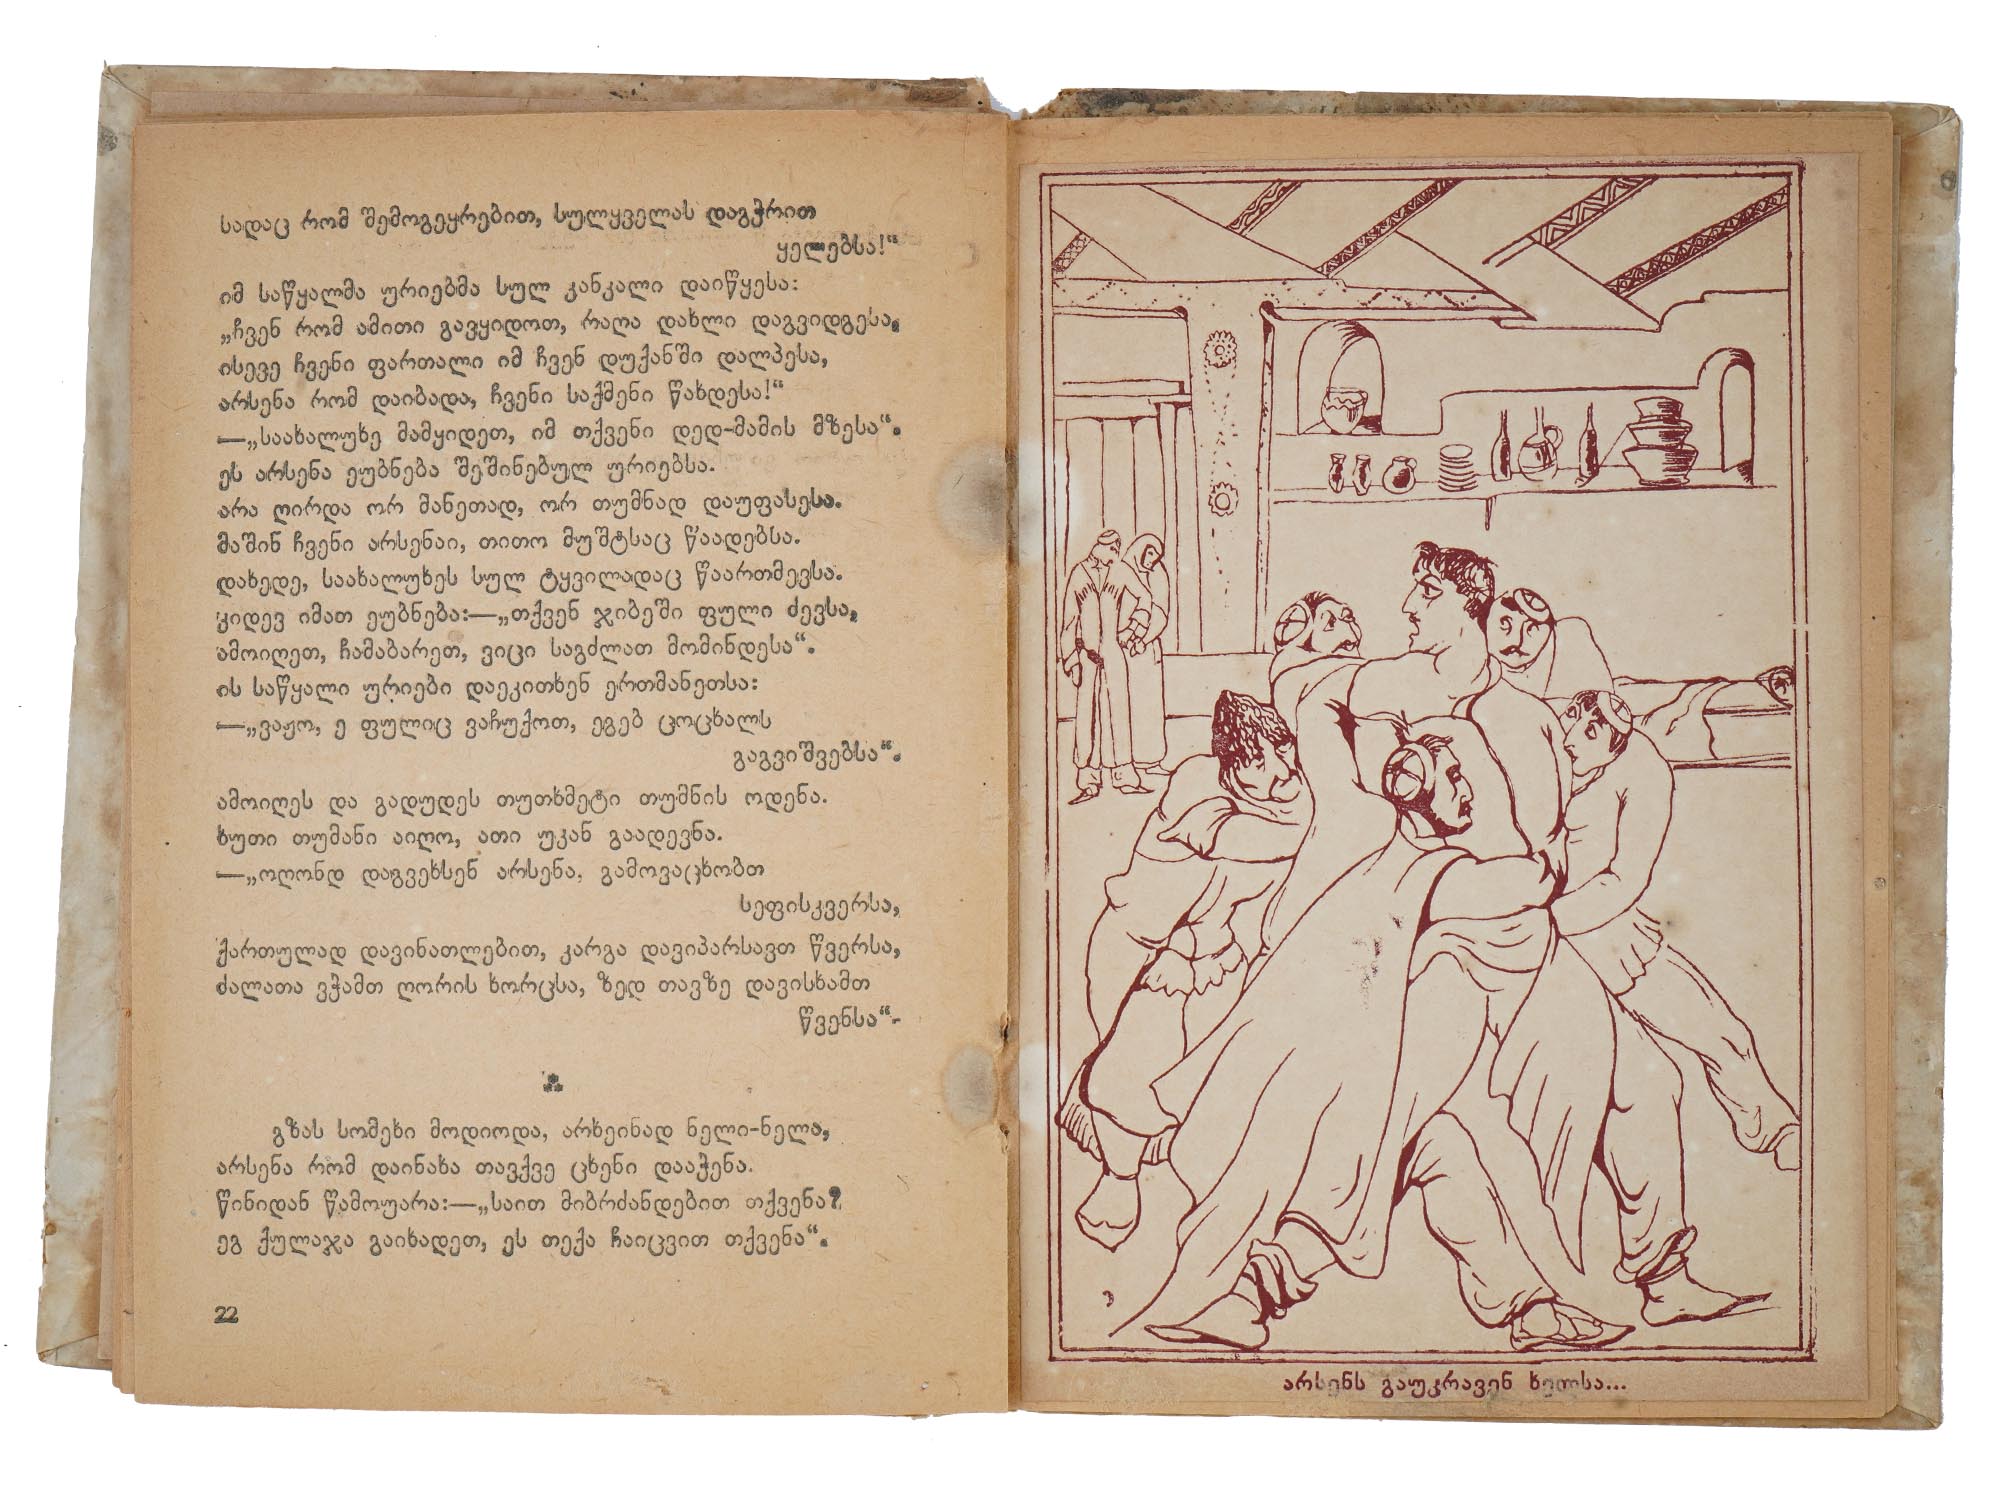 სადაც რომ შემოგეყრებით, სულყველას დაგჭრით
ყელებსა!“
იმ საწყალმა ურიებმა სულ კანკალი დაიწყესა:
„ჩვენ რომ ამითი გავყიდოთ, რაღა დახლი დაგვიდგესა,
ისევე ჩვენი ფართალი იმ ჩვენ დუქანში დალპესა,
არსენა რომ დაიბადა, ჩვენი საქმენი წახდესა!“
—„საახალუხე მამყიდეთ, იმ თქვენი დედ-მამის მზესა“.
ეს არსენა ეუბნება შეშინებულ ურიებსა.
არა ღირდა ორ მანეთად, ორ თუმნად დაუფასესა.
მაშინ ჩვენი არსენაი, თითო მუშტსაც წაადებსა.
დახედე, საახალუხეს სულ ტყვილადაც წაართმევსა.
კიდევ იმათ ეუბნება:—„თქვენ ჯიბეში ფული ძევსა,
ამოიღეთ, ჩამაბარეთ, ვიცი საგძლათ მომინდესა“.
ის საწყალი ურიები დაეკითხენ ერთმანეთსა:
—„ვაჟო, ე ფულიც ვაჩუქოთ, ეგებ ცოცხალს
გაგვიშვებსა“.
ამოიღეს და გადუდეს თუთხმეტი თუმნის ოდენა.
ხუთი თუმანი აიღო, ათი უკან გაადევნა.
—„ოღონდ დაგვეხსენ არსენა, გამოვაცხობთ
სეფისკვერსა,
ქართულად დავინათლებით, კარგა დავიპარსავთ წვერსა,
ძალათა ვჭამთ ღორის ხორცსა, ზედ თავზე დავისხამთ
წვენსა“.
გზას სომეხი მოდიოდა, არხეინად ნელი-ნელა,
არსენა რომ დაინახა თავქვე ცხენი დააჭენა.
წინიდან წამოუარა:—„საით მიბრძანდებით თქვენა?
ეგ ქულაჯა გაიხადეთ, ეს თექა ჩაიცვით თქვენა“.
22
არსენს გაუკრავენ ხელსა...